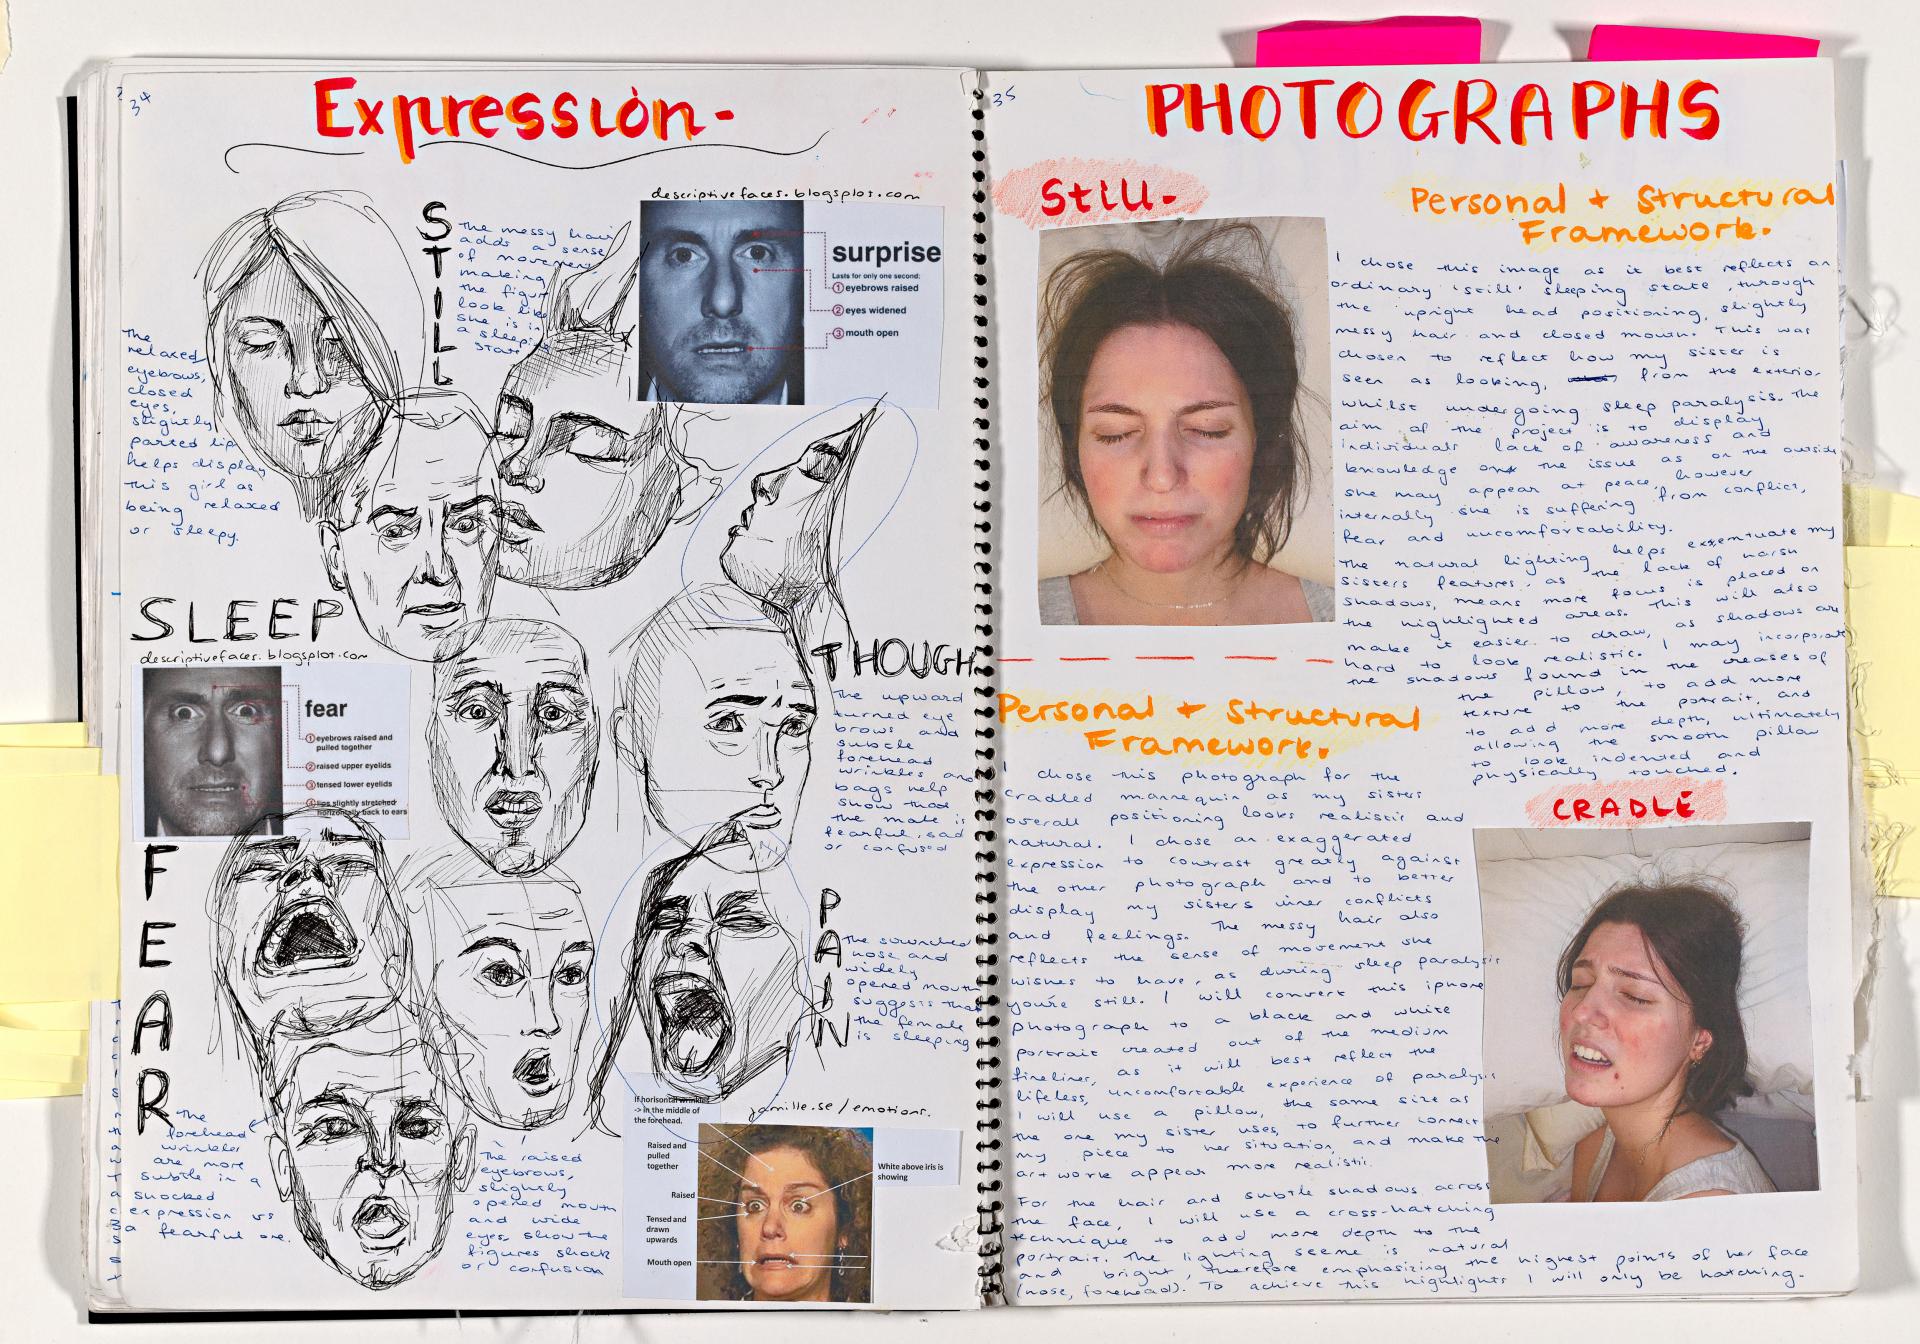 34
Expression-
STILL
The messy hair
adds a sense
of movement
making
the figure
look like
she is in
a sleeping
state
descriptivefaces.blogsplot.com
surprise
Lasts for only one second:
1 eyebrows raised
2 eyes widened
3 mouth open
The
relaxed
eyebrows,
closed
eyes,
slightly
parted lip
helps display
this girl as
being relaxed
or sleepy.
SLEEP
descriptivefaces.blogsplot.com
fear
1 eyebrows raised and
pulled together
2 raised upper eyelids
3 tensed lower eyelids
4 lips slightly stretched
horizontally back to ears
THOUGH
The upward
turned eye
brows and
subtle
forehead
wrinkles and
bags help
show that
the male is
fearful, sad
or confused
FEAR
The
forehead
wrinkles
are more
subtle in a
shocked
expression vs
a fearful one.
PAIN
The scrunched
nose and
widely
opened mouth
suggests that
the female
is sleeping
The raised
eyebrows,
slightly
opened mouth
and wide
eyes, show the
figures shock
or confusion
jamille.se/emotions.
If horisontal wrinkles
-> in the middle of
the forehead.
Raised and
pulled
together
Raised
Tensed and
drawn
upwards
Mouth open
White above iris is
showing
35
PHOTOGRAPHS
Still.
Personal + Structural
Framework.
I chose this image as it best reflects an
ordinary 'still' sleeping state, through
the upright head positioning, slightly
messy hair and closed mouth. This was
chosen to reflect how my sister is
seen as looking, from the exterior
whilst undergoing sleep paralysis. The
aim of the project is to display
individuals lack of awareness and
knowledge on the issue as on the outside
she may appear at peace, however
internally she is suffering from conflict,
fear and uncomfortability.
The natural lighting helps exxentuate my
sisters features, as the lack of harsh
shadows, means more focus is placed on
the highlighted areas. This will also
make it easier to draw, as shadows are
hard to look realistic. I may incorporate
the shadows found in the creases of
the pillow, to add more
texture to the potrait, and
to add more depth, ultimately
allowing the smooth pillow
to look indented and
physically touched.
Personal + Structural
Framework.
I chose this photograph for the
cradled mannequin as my sisters
overall positioning looks realistic and
natural. I chose an exaggerated
expression to contrast greatly against
the other photograph and to better
display my sisters inner conflicts
and feelings. The messy hair also
reflects the sense of movement she
wishes to have, as during sleep paralysis
you're still. I will convert this iphone
photograph to a black and white
portrait created out of the medium
fineliner, as it will best reflect the
lifeless, uncomfortable experience of paralysis.
I will use a pillow, the same size as
the one my sister uses, to further connect
my piece to her situation, and make the
artwork appear more realistic.
For the hair and subtle shadows across
the face, I will use a cross-hatching
technique to add more depth to the
portrait. The lighting seems is natural
and bright, therefore emphasizing the highest points of her face
(nose, forehead). To achieve this highlights I will only be hatching.
CRADLE